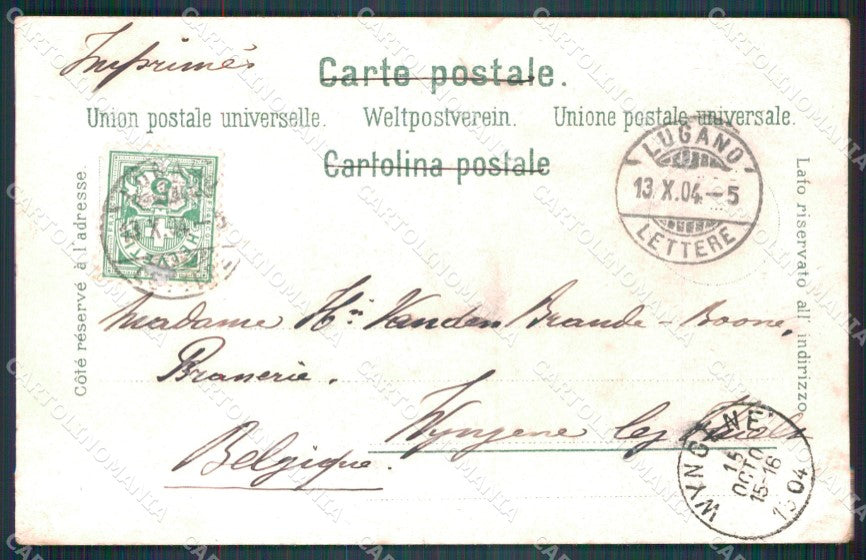 Imprimés
Carte postale.
Union postale universelle. Weltpostverein. Unione postale universale.
Cartolina postale
LUGANO
13 X.04–5
LETTERE
5
HELVETIA
13 X.04
Côté réservé à l'adresse.
Lato riservato all' indirizzo
Madame Hri Vanden Brande-Boone,
Brasserie.
Wyngene lez Thielt
Belgique.
WYNGENE
15
OCTO
15-16
1904
CARTOLINOMANIA